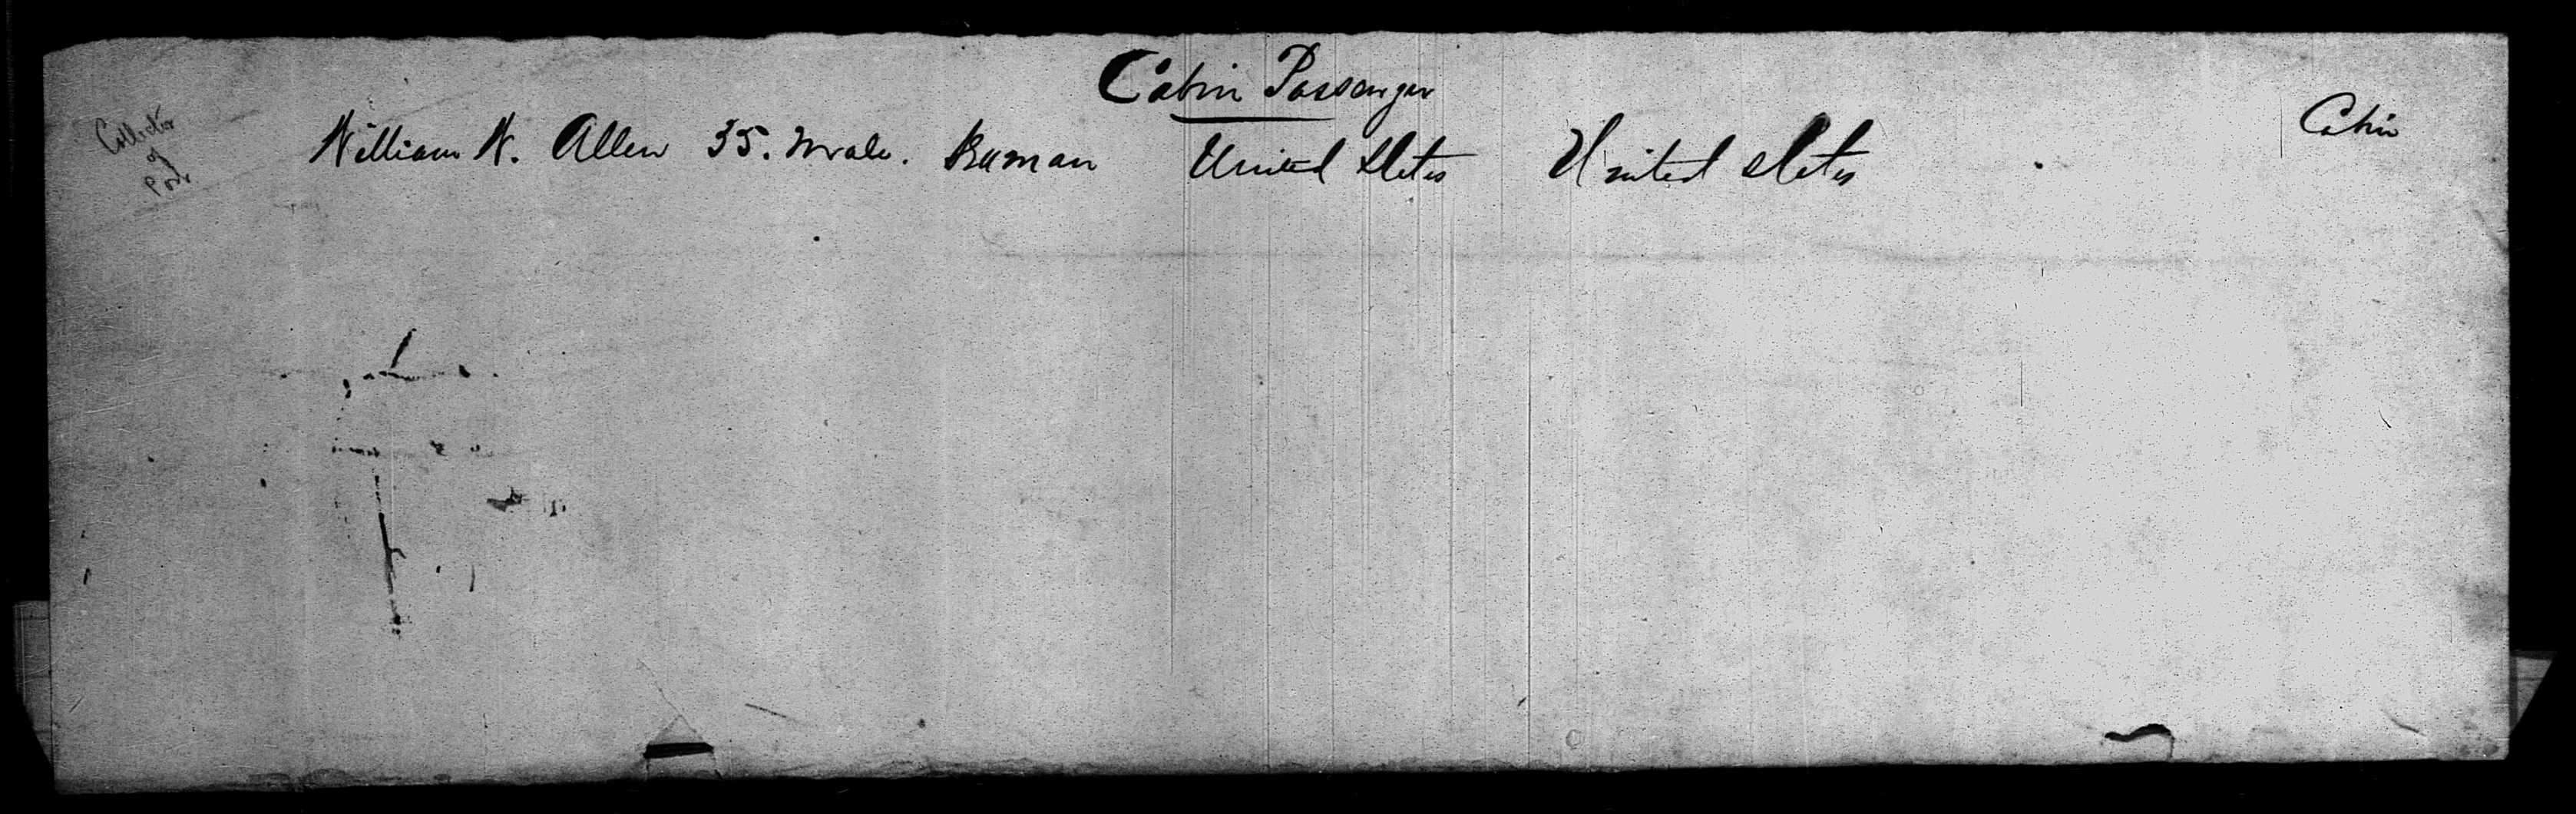 Cabin Passenger
Collector
of
Port
William W. Allen 35. Male. Seaman United States United States Cabin